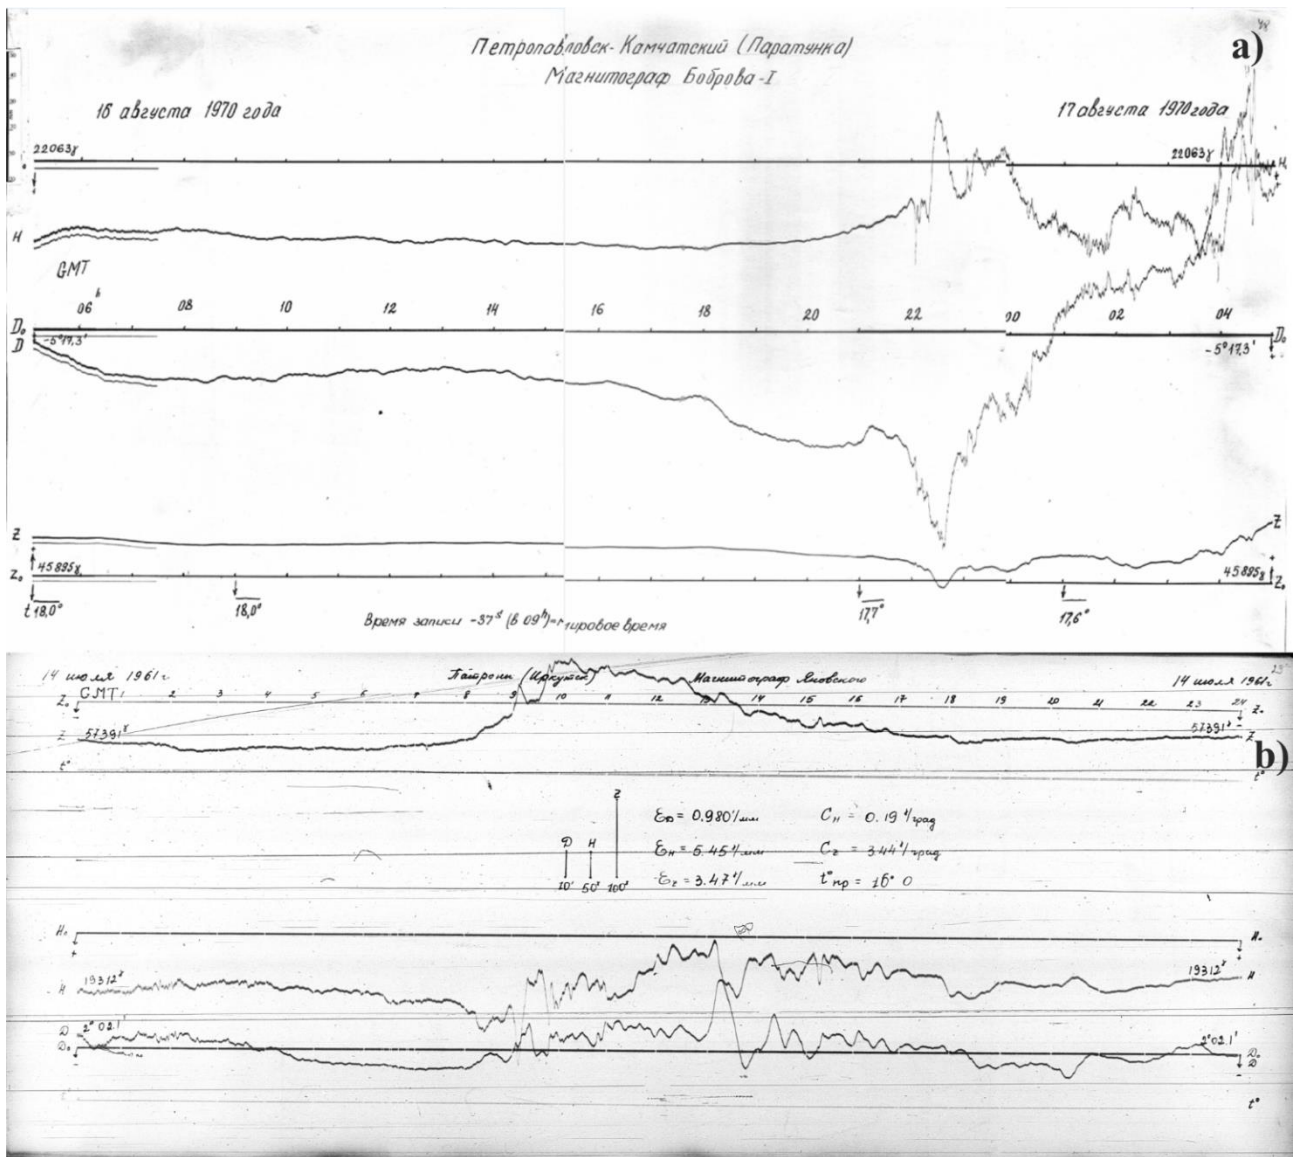 44
a)
Петропавловск-Камчатский (Паратунка)
Магнитограф Боброва-I
16 августа 1970 года
17 августа 1970 года
22063γ
22063γ
H
H
GMT
06ʰ 08 10 12 14 16 18 20 22 00 02 04
D₀ D₀
D -5°17,3'
-5°17,3'
Z Z
Z₀ 45895γ 45895γ Z₀
t 18,0° 18,0° 17,7° 17,6°
Время записи -37ˢ (в 09ʰ)=мировое время
14 июля 1961г Патроны (Иркутск) Магнитограф Яновского 14 июля 1961г
23
GMT 1 2 3 4 5 6 7 8 9 10 11 12 13 14 15 16 17 18 19 20 21 22 23 24
Z₀ Z₀
Z 57391ᵞ 57391ᵞ Z
b)
t° t°
Z
D H
10' 50ᵞ 100ᵞ
ℰD = 0.980'/мм Cн = 0.19ᵞ/град
ℰн = 5.45ᵞ/мм Cz = 3.44ᵞ/град
ℰz = 3.47ᵞ/мм t°пр = 16°0
H₀ H₀
19312ᵞ 19312ᵞ
H H
D 2°02.1' 2°02.1'
D₀ D₀
D
t° t°